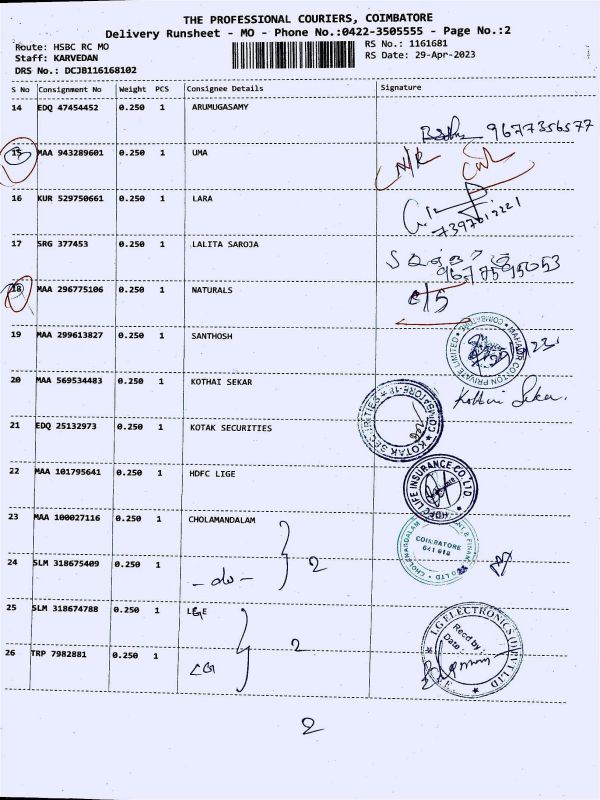 THE PROFESSIONAL COURIERS, COIMBATORE
Delivery Runsheet - MO - Phone No.:0422-3505555 - Page No.:2
Route: HSBC RC MO
RS No.: 1161681
Staff: KARVEDAN
RS Date: 29-Apr-2023
DRS No.: DCJB116168102
S No Consignment No Weight PCS Consignee Details Signature
14 EDQ 47454452 0.250 1 ARUMUGASAMY
9677356577
15 MAA 943289601 0.250 1 UMA N/R
16 KUR 529750661 0.250 1 LARA
7397612221
17 SRG 377453 0.250 1 LALITA SAROJA
18 MAA 296775106 0.250 1 NATURALS c/s
19 MAA 299613827 0.250 1 SANTHOSH
MAHAVIR COTTON PRIVATE LIMITED COIMBATORE
20 MAA 569534483 0.250 1 KOTHAI SEKAR Kothai Sekar.
21 EDQ 25132973 0.250 1 KOTAK SECURITIES
KOTAK SECURITIES COIMBATORE-18
22 MAA 101795641 0.250 1 HDFC LIGE
HDFC LIFE INSURANCE CO. LTD
23 MAA 100027116 0.250 1 CHOLAMANDALAM
CHOLAMANDALAM & FINANCE CO LTD
COIMBATORE
641 018
24 SLM 318675409 0.250 1 - do - 2
25 SLM 318674788 0.250 1 LGE
LG ELECTRONICS (I) PVT LTD
Recd by
Date
26 TRP 7982881 0.250 1 LG 2
2